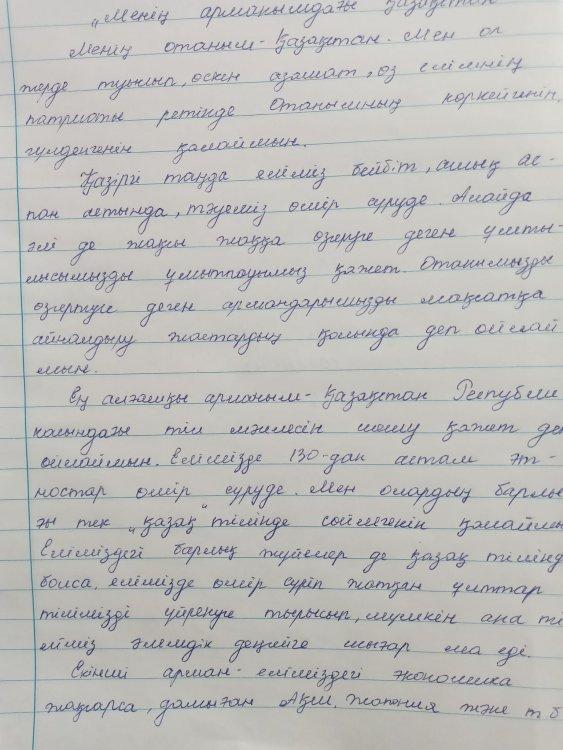 „Менің арманымдағы Қазақстан
Менің отаным - Қазақстан. Мен ол
жерде туылып, өскен азамат, өз елімнің
патриоты ретінде Отанымның көркейгенін,
гүлденгенін қалаймын.
Қазіргі таңда еліміз бейбіт, ашық ас-
пан астында, тәуелсіз өмір сүруде. Алайда
әлі де жақсы жаққа өзгеруге деген ұмты-
лысымызды ұмытпауымыз қажет. Отанымызды
өзгертуге деген армандарымызды мақсатқа
айналдыру жастардың қолында деп ойлай
мын.
Ең алғашқы арманым - Қазақстан Республи
касындағы тіл мәселесін шешу қажет деп
ойлаймын. Елімізде 130-дан астам эт-
ностар өмір сүруде. Мен олардың барлы
ғы тек „қазақ" тілінде сөйлегенін қалаймы
Еліміздегі барлық жүйелер де қазақ тілінд
болса, елімізде өмір сүріп жатқан ұлттар
тілімізді үйренуге тырысып, мүмкін ана ті
еліміз әлемдік деңгейге шығар ма еді.
Екінші арман - еліміздегі экономика
жақсарса, дамыған АҚШ, Жапония және т.б